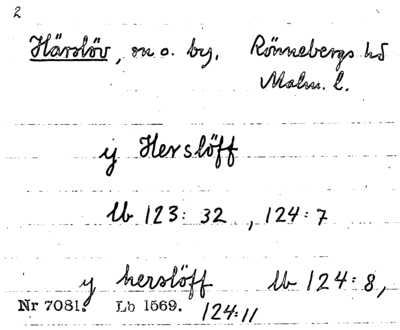 2
Härslöv, sn o. by. Rönnebergs hd
Malm. l.
y Herslöff
lb 123: 32, 124:7
y herslöff lb 124:8,
Nr 7081. Lb 1569. 124:11